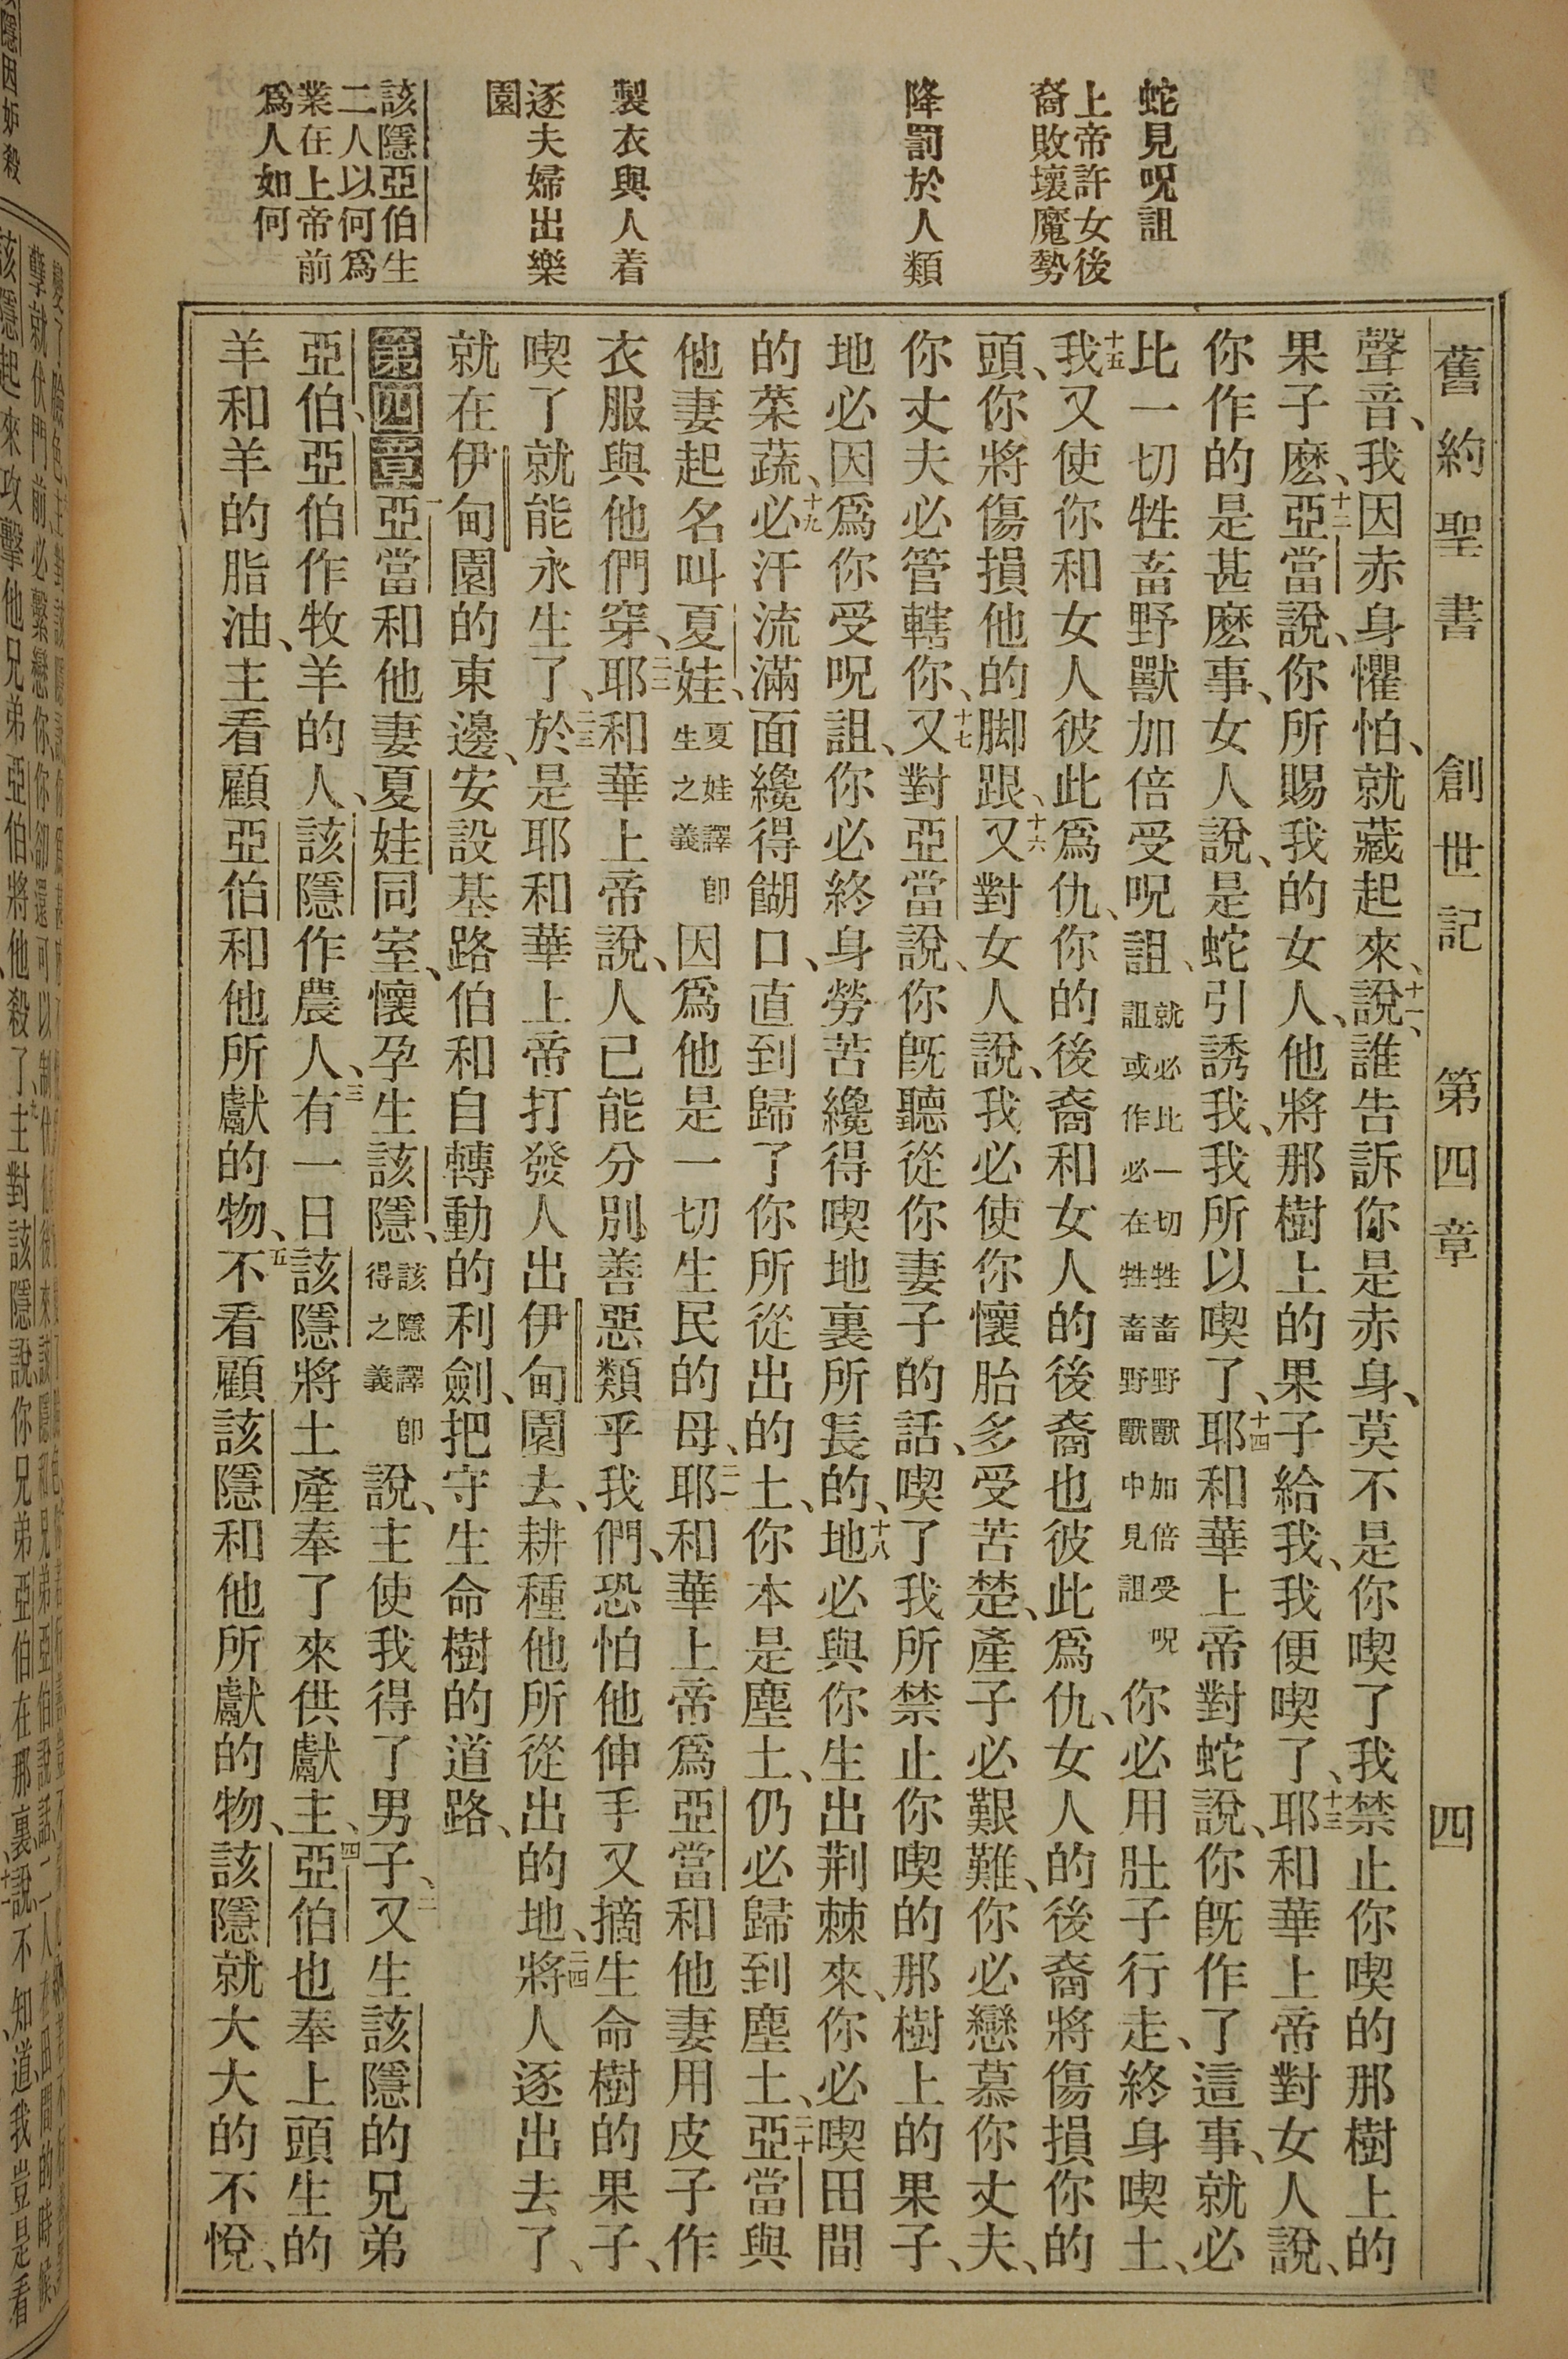 舊約聖書 創世記 第四章 四
蛇見呪詛
上帝許女後
裔敗壞魔勢
降罰於人類
製衣與人着
逐夫婦出樂
園
該隱亞伯生
二人以何爲
業在上帝前
爲人如何
聲音、我因赤身懼怕、就藏起來、十一說、誰告訴你是赤身、莫不是你喫了我禁止你喫的那樹上的
果子麽、十二亞當說、你所賜我的女人、他將那樹上的果子給我、我便喫了、十三耶和華上帝對女人說、
你作的是甚麽事、女人說、是蛇引誘我、我所以喫了、十四耶和華上帝對蛇說、你旣作了這事、就必
比一切牲畜野獸加倍受呪詛、就必比一切牲畜野獸加倍受呪詛或作必在牲畜野獸中見詛你必用肚子行走、終身喫土、
十五我又使你和女人彼此爲仇、你的後裔和女人的後裔也彼此爲仇、女人的後裔將傷損你的
頭、你將傷損他的脚跟、十六又對女人說、我必使你懷胎多受苦楚、產子必艱難、你必戀慕你丈夫、
你丈夫必管轄你、十七又對亞當說、你旣聽從你妻子的話、喫了我所禁止你喫的那樹上的果子、
地必因爲你受呪詛、你必終身勞苦纔得喫地裏所長的、十八地必與你生出荆棘來、你必喫田間
的菜蔬、十九必汗流滿面纔得餬口、直到歸了你所從出的土、你本是塵土、仍必歸到塵土、二十亞當與
他妻起名叫夏娃、夏娃譯卽生之義因爲他是一切生民的母、二一耶和華上帝爲亞當和他妻用皮子作
衣服與他們穿、二二耶和華上帝說、人已能分別善惡類乎我們、恐怕他伸手又摘生命樹的果子、
喫了就能永生了、二三於是耶和華上帝打發人出伊甸園去、耕種他所從出的地、二四將人逐出去了、
就在伊甸園的東邊、安設基路伯和自轉動的利劍、把守生命樹的道路、
第四章 一亞當和他妻夏娃同室、懷孕生該隱、該隱譯卽得之義說、主使我得了男子、二又生該隱的兄弟
亞伯、亞伯作牧羊的人、該隱作農人、三有一日該隱將土產奉了來供獻主、四亞伯也奉上頭生的
羊和羊的脂油、主看顧亞伯和他所獻的物、五不看顧該隱和他所獻的物、該隱就大大的不悅、
隱因妬殺
該隱起來攻擊他兄弟亞伯將他殺了、九主對該隱說、你兄弟亞伯在那裏、說、不知道、我豈是看